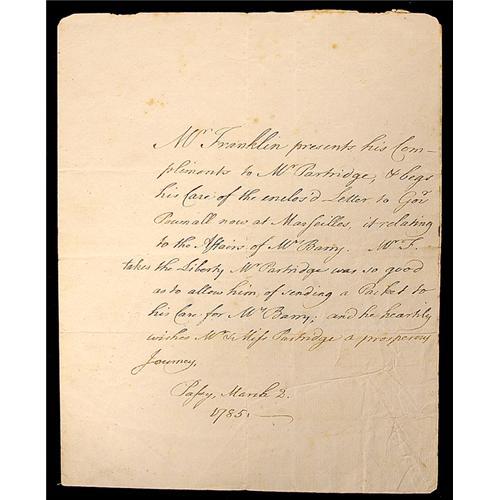 Mr Franklin presents his Com-
pliments to Mr Partridge, & begs
his Care of the enclos'd Letter to Govr
Pownall now at Marseilles, it relating
to the Affairs of Mrs Barry. Mr F.
takes the Liberty Mr Partridge was so good
as to allow him, of sending a Packet to
his Care for Mrs Barry; and he heartily
wishes Mr & Miss Partridge a prosperous
Journey.
Passy, March 2.
1785.